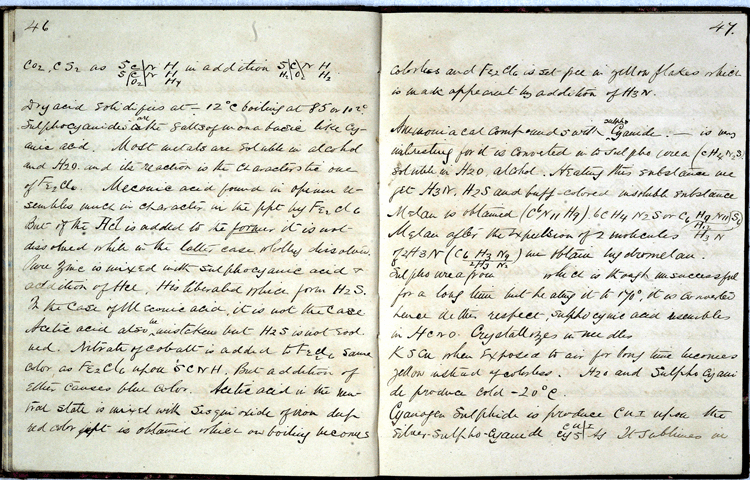 46
CO2, CS2 as S C N H in addition S C N H
S C N H H O H2
O2 H4
Dry acid solidifies at - 12°C boiling at 85 or 102°
Sulphocyanides are the salts of monobasic like Cy-
anic acid. Most metals are soluble in alcohol
and H2O. and its reaction is the characteristic one
of Fe2Cl6. Meconic acid found in opium re-
sembles much in character in the ppt by Fe2Cl6
But if the HCl is added to the former it is not
dissolved while in the latter case wholly dissolves.
Pure Zinc is mixed with sulphocyanic acid +
addition of HCl, H is liberated which form H2S.
In the case of Meconic acid, it is not the case
Acetic acid also mistaken but H2S is not
Nitrate of cobalt is added to same
color as Fe2Cl6 upon SCNH. But addition of
Ether causes blue color. Acetic acid in the neu-
tral state is mixed with Sesquioxide of iron deep
red color ppt is obtained which on boiling becomes
47.
colorless and Fe2Cl6 is set free in yellow flakes which
is made apparent by addition of H3N.
sulpho
Ammoniacal compounds with Cyanide. — is very
interesting for it is converted into Sulpho urea (CH4N2S)
soluble in H2O, alchol. Heating this substance we
get H3N. H2S and buff-colored insoluble substance
Melan is obtained (C6N11H9). 6CH4N2S or C6 H9 N11
Melan after the expulsion of 2 molecules H3N
of 2H3N (C6 H3 N9) we obtain hydromelan.
2H3N
Sulpho urea from which is though unsuccessful
for a long time but heating it to 170°, it is converted
hence in this respect, sulphocynic acid resembles
in HCNO. Crystallizes in needles
KSCu when exposed to air for long time becomes
yellow instead of colorless. H2O and Sulpho Cyani
de produce cold -20°C.
Cyanogen Sulphide is produce CNI upon the
Silver-Sulpho-Cyanide It sublimes in